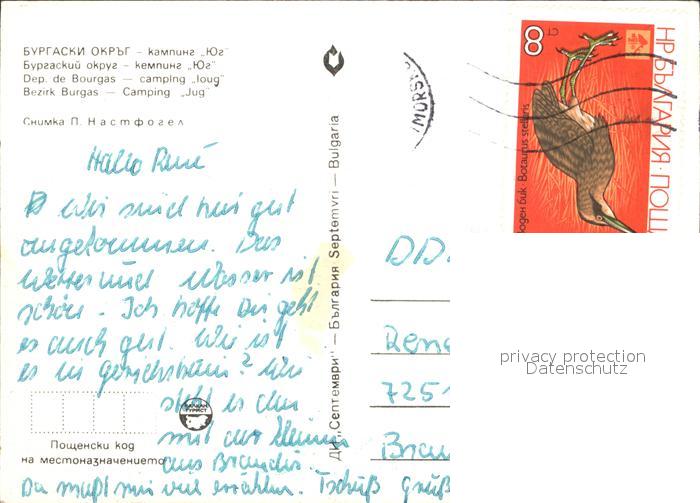 БУРГАСКИ ОКРЪГ - кампинг "Юг"
Бургаский округ - кемпинг "Юг"
Dep. de Bourgas — camping „Ioug"
Bezirk Burgas — Camping „Jug"
Снимка П. Настфогел
Hallo René
Wir sind hier gut
angekommen. Das
Wetter und Wasser ist
schön. Ich hoffe Dir geht
es auch gut. Wie ist
es in? Wie
steht es denn
mit der kleinen
aus Brandis.
Du mußt mir viel erzählen. Tschüß Grüß
Пощенски код
на местоназначението
БАЛКАН
ТУРИСТ
ДИ „Септември" — България Septemvri — Bulgaria
MORSK
8 СТ
НР БЪЛГАРИЯ · ПОЩ
воден бик Botaurus stellaris
DD
Ren
725
Bra
privacy protection
Datenschutz